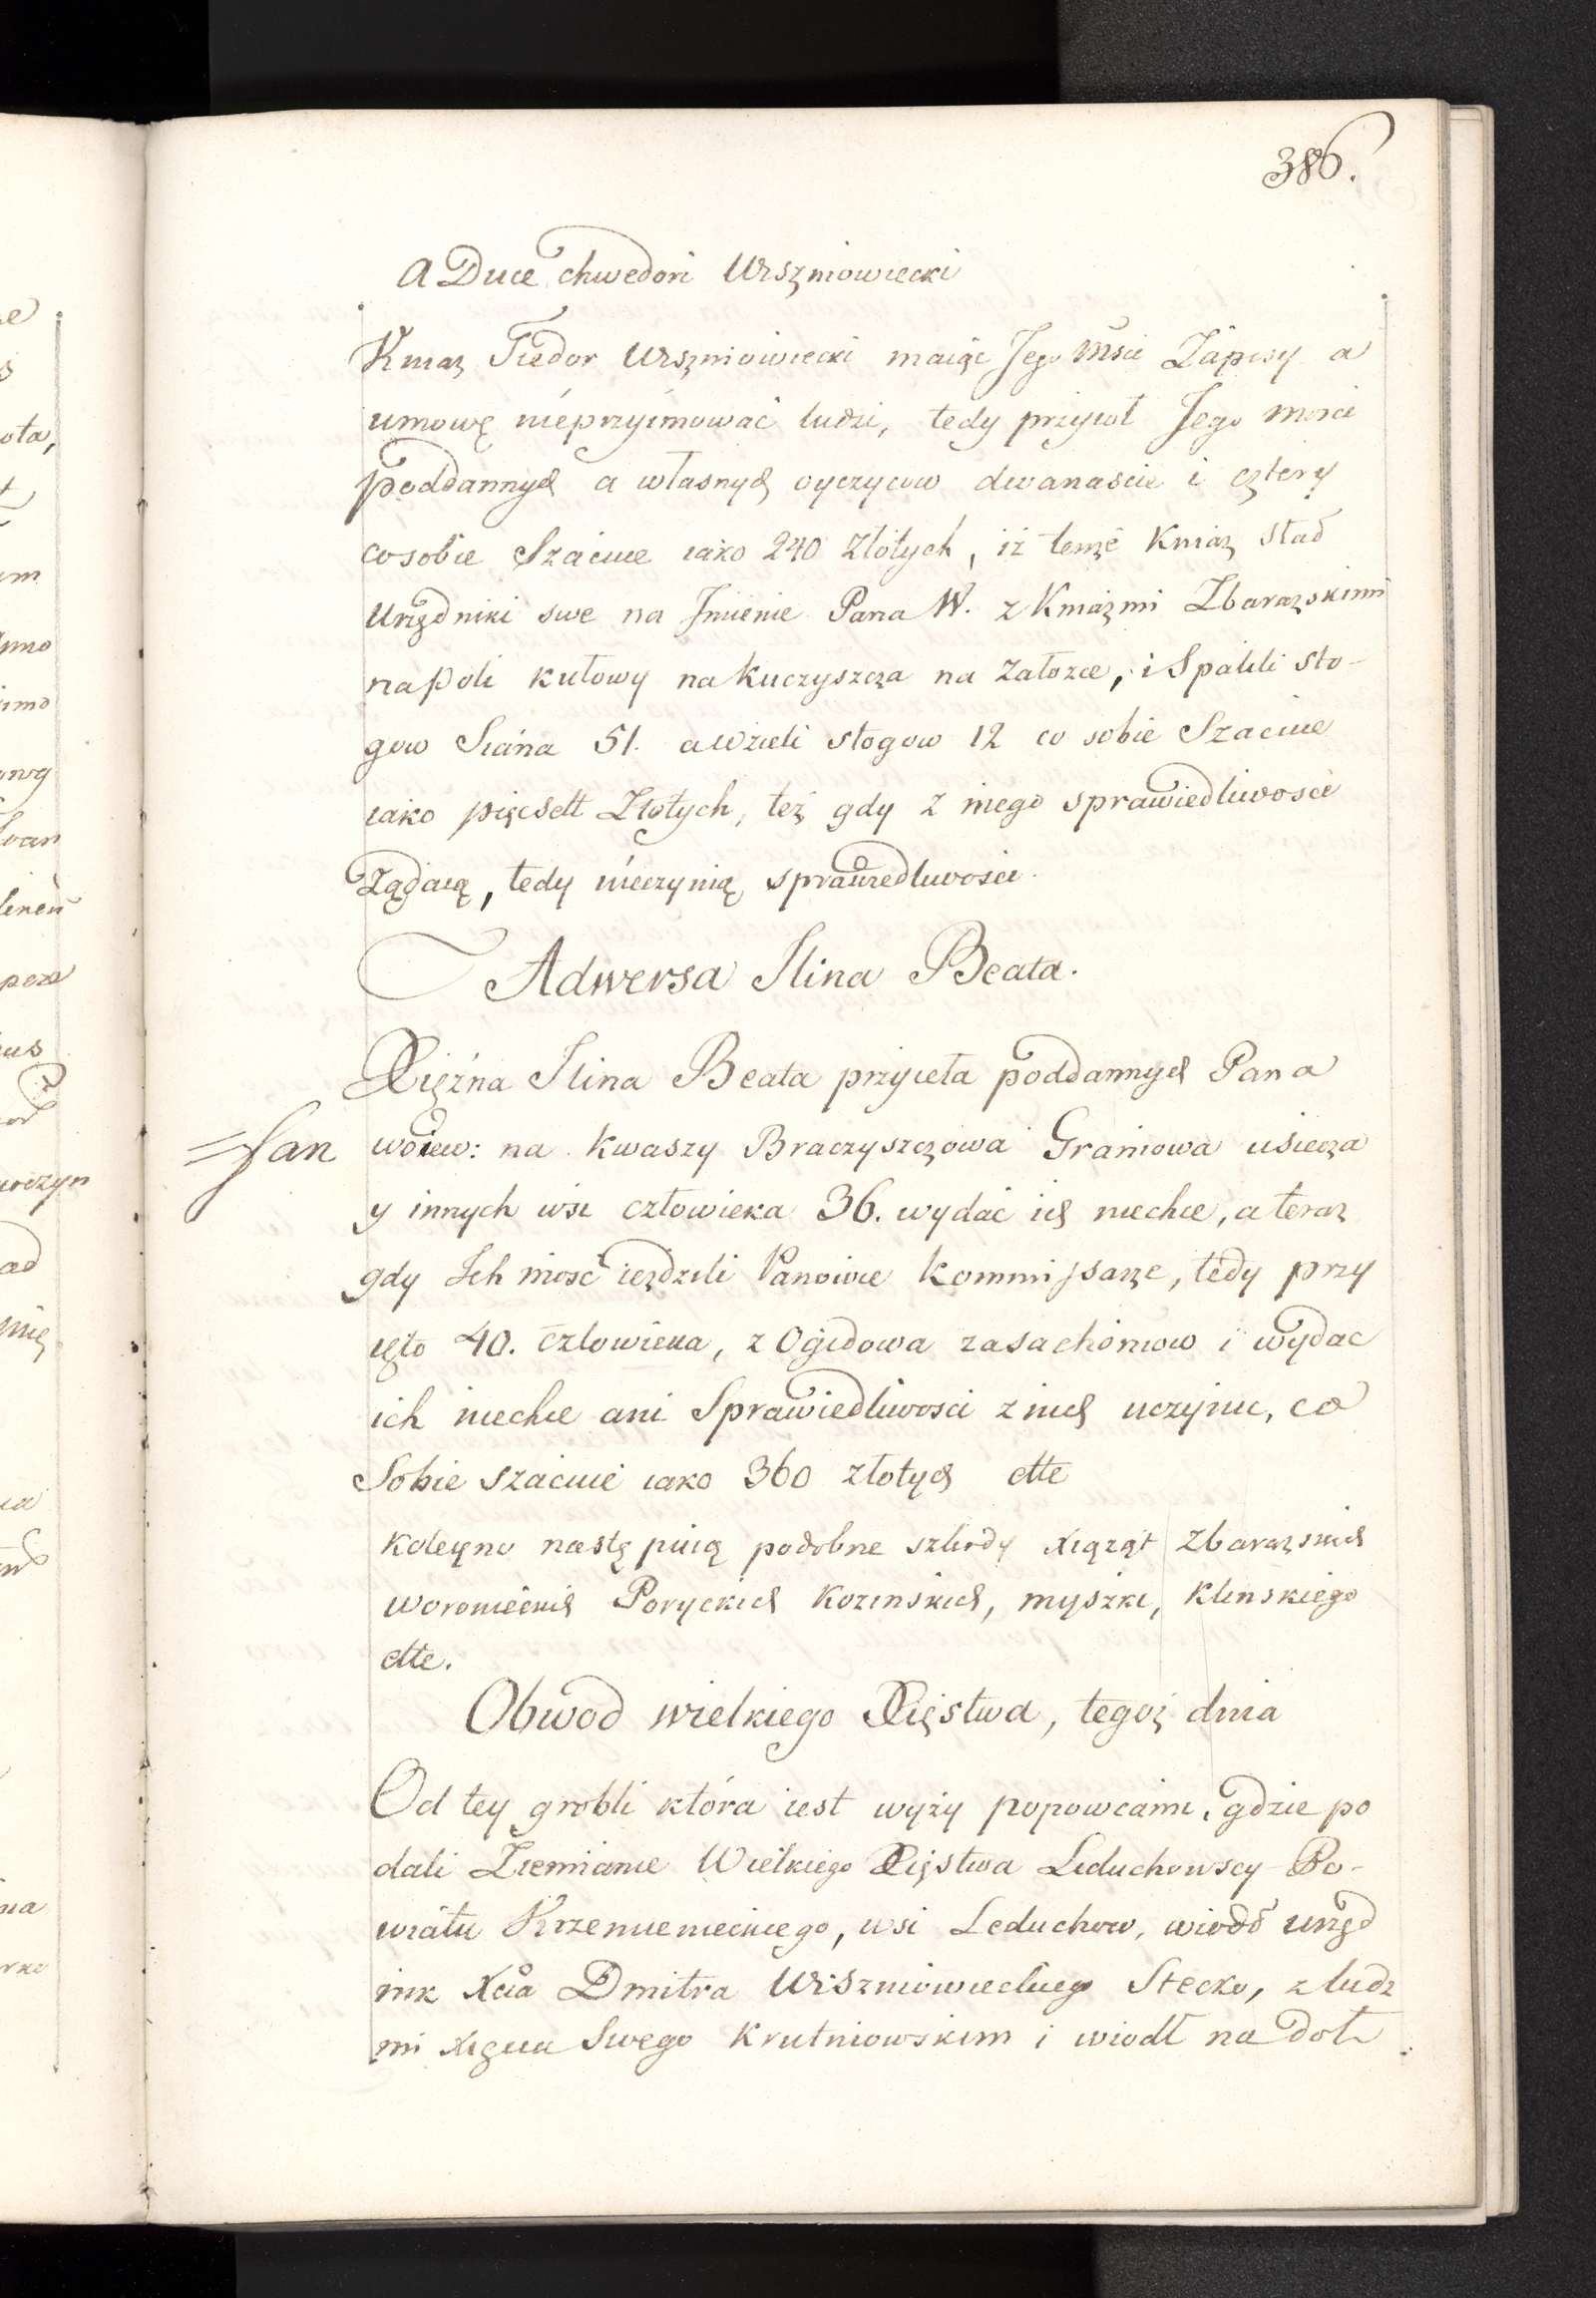 386.
A Duce chwedori Wiszniowiecki
Kniaz Fiedor Wiszniowiecki maiąc Jego Mśći Zapisy a
umowę nieprzyimować ludzi, tedy przyioł Jego mosci
poddannych a własnych oyczycow dwanascie i cztery
co sobie Szacuie iako 240 złotych, iż tenże Kniaz słał
Urzędniki swe na Jmienie Pana W. z Kniaźmi Zbarazskimi
napoli kutowy na Kuczyszcza na Załozce, i Spalili sto-
gow Siana 51. a wzieli stogow 12 co sobie Szacuie
iako pięcsett Złotych, też gdy z niego sprawiedliwosci
Żądaią, tedy nieczynią sprawiedliwosci.
Adwersa Ilina Beata.
Xiężna Ilina Beata przyieła poddannych Pana
=san woiew: na Kwaszy Braczyszczowa Graniowa usiecza
y innych wsi człowieka 36. wydać ich niechce, a teraz
gdy Ich mosć iezdzili Panowie Kommissarze, tedy przy
ięto 40. człowieka, z Ogidowa zasachoniow i wydac
ich niechce ani Sprawiedliwosci z nich uczynic, co
Sobie szacuie iako 360 złotych ette
Koleyno następuią podobne szkody xiąząt Zbarazskich
Woronieckich Poryckich Kozinskich, myszki, Klinskiego
ette.
Obwod wielkiego Xięstwa, tegoż dnia
Od tey grobli która iest wyży popowcami, gdzie po
dali Ziemianie Wielkiego Xięstwa Leduchowscy Po-
wiatu Krzemienieckiego, wsi Leduchow, wiodł urzęd
nik Xcia Dmitra Wiszniowieckiego Stecko, z ludz
mi xięcia Swego Krutniowskim i wiodł na doł